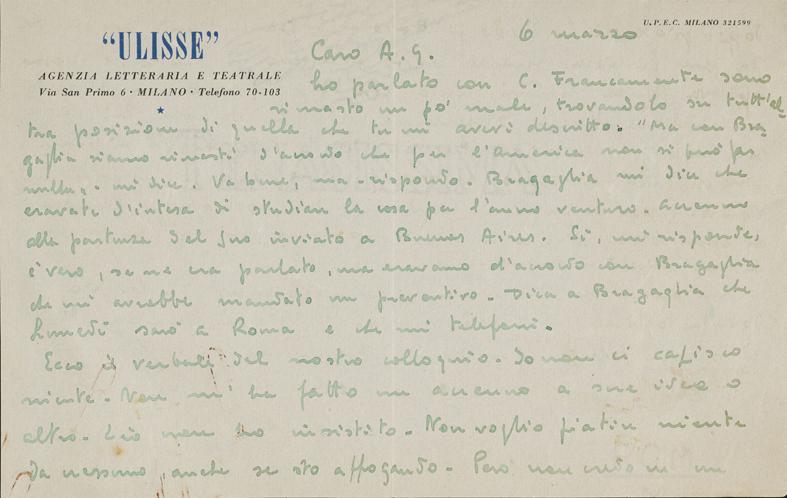 U.P.E.C. MILANO 321599
"ULISSE"
AGENZIA LETTERARIA E TEATRALE
Via San Primo 6 · MILANO · Telefono 70-103
6 marzo
Caro A. G.
ho parlato con C. Francamente sono
rimasto un po' male, trovandolo su tutt'al-
tra posizione di quella che tu mi avevi descritto. "Ma con Bra-
gaglia siamo rimasti d'accordo che per l'america non si può far
nulla„. mi dice. Va bene, ma - rispondo. Bragaglia mi dice che
eravate d'intesa di studiar la cosa per l'anno venturo. accenno
alla partenza del suo inviato a Buenos Aires. Sì, mi risponde,
è vero, se ne era parlato, ma eravamo d'accordo con Bragaglia
che mi avrebbe mandato un preventivo. Dica a Bragaglia che
lunedì sarò a Roma e che mi telefoni.
Ecco il verbale del nostro colloquio. Io non ci capisco
niente. Non m'ha fatto un accenno a sue idee o
altro. Ed io non ho insistito. Non voglio piatir niente
da nessuno, anche se sto affogando. Però non credo in un